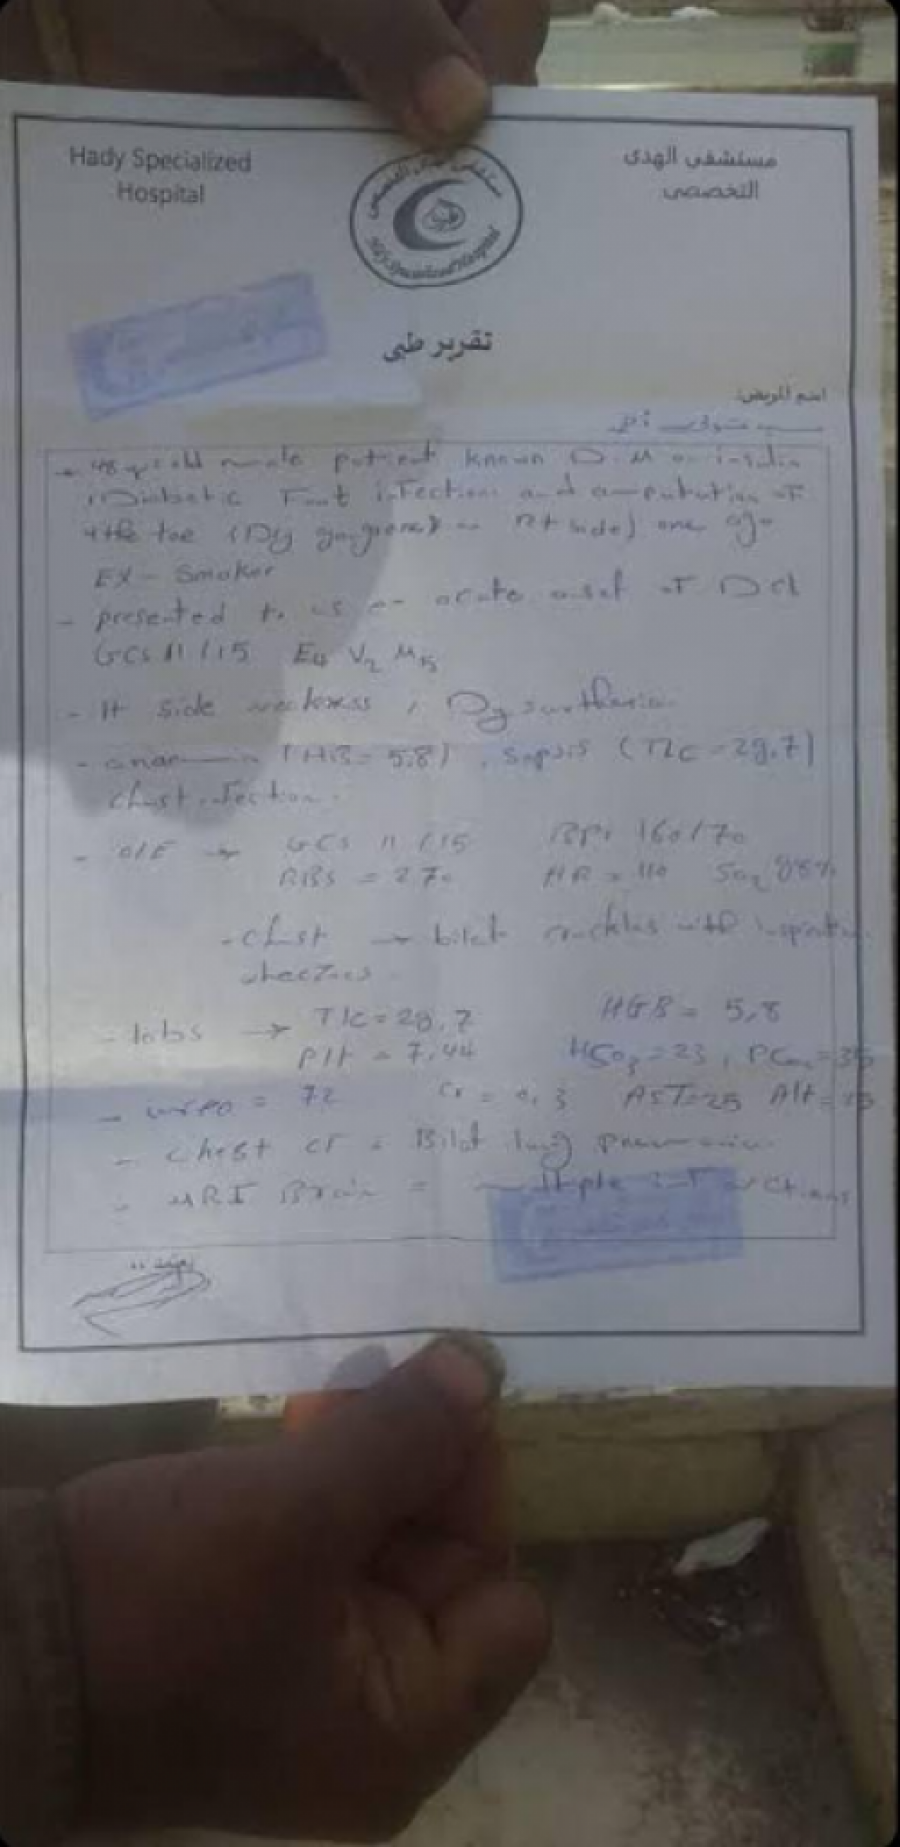 Hady Specialized
Hospital
مستشفى الهدى
التخصصى
Hady Specialized Hospital
تقرير طبى
اسم المريض:
سيد
- 48 old male patient known D.M on insulin
Diabetic Foot infection and amputation of
4th toe (Dry gangrene) Rt side) one ago
EX - Smoker
- presented to us acute onset of DCL
GCS 11/15 E4 V2 M5
- side weakness , Dysarthria
- (HB = 5,8) , Sepsis (TLC = 29,7)
chest infection.
- O/E → GCS 11/15 BP: 160/70
RBS = 270 HR = 110 SO2 88%
- chest → bilat crackles with inspiratory
wheezes.
- labs → TLC = 29,7 HGB = 5,8
Plt = 7,44 = 23 , = 35
- urea = 72 Cr = 0,3 AST = 25 Alt =
- chest CT = Bilat lung pneumonia
- MRI Brain = multiple infarctions